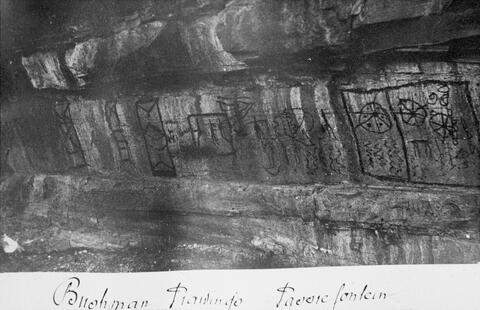 Bushman Drawings Paarlefontein